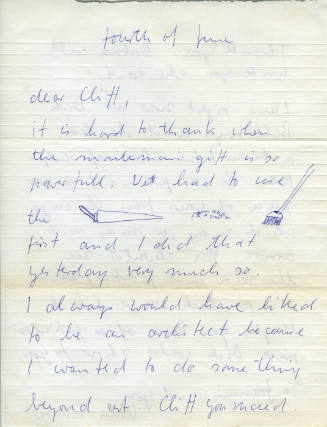 fourth of june
dear Cliff,
it is hard to thank when
the maileman gift is so
powerfull. Vet had to use
the
first and I did that
yesterday very much so.
I always would have liked
to be an architect because
I wanted to do some thing
beyond art. Cliff you succed.